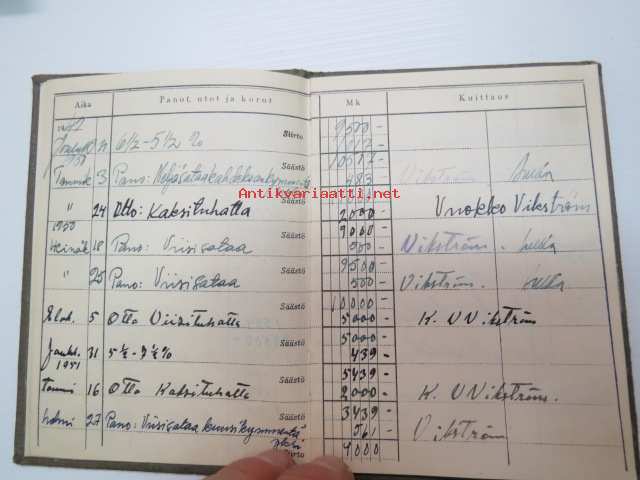 Aika Panot, otot ja korot Mk Kuittaus
Siirto 9500 -
31 6½ - 5½ %
Säästö
Tammik 3 Pano: 483 - Vikström
Antikvariaatti.net
" 24 Otto: Kaksituhatta 2000 - Vuokko Vikström
1950 Säästö 9000 -
Heinäk 18 Pano: Viisisataa 500 - Vikström.
Säästö 9500 -
" 25 Pano: Viisisataa 500 - Vikström.
Säästö 10000 -
Elok. 5 Otto Viisituhatta 5000 - K. V Vikström
Säästö 5000 -
Jouluk. 31 5½ - 7½ % 439 -
1951 Säästö 5439 -
Tammi 16 Otto Kaksituhatta 2000 - K. V Vikström.
Säästö 3439 -
Helmi 27 Pano: Viisisataakuusikymmentä 561 - Vikström
yksi
Siirto 4000